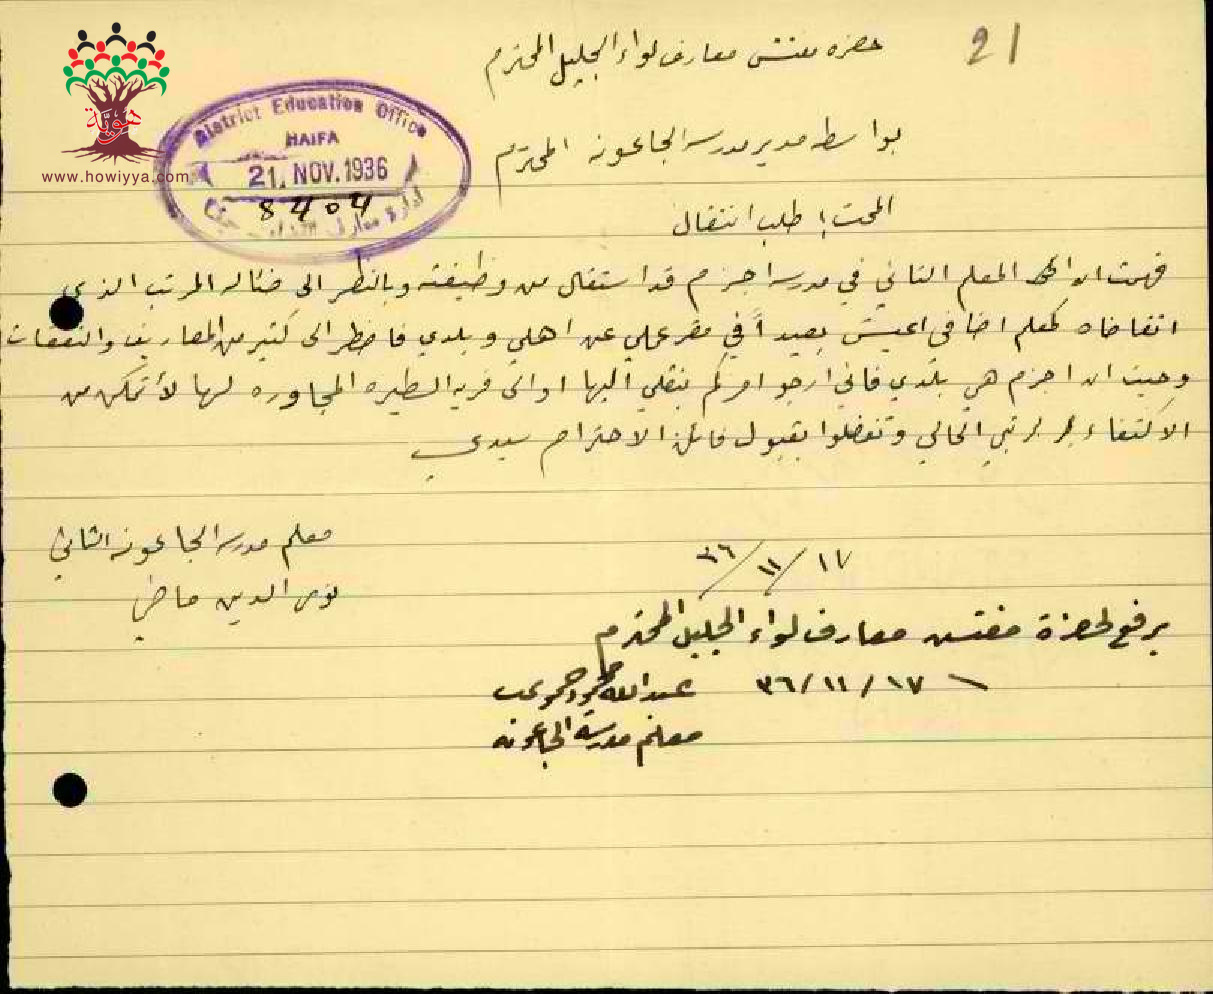 21
حضرة مفتش معارف لواء الجليل المحترم
بواسطة مدير مدرسة الجاعونة المحترم
طلب انتقال
فهمت ان المعلم الثاني في مدرسة اجزم قد استقال من وظيفته وبالنظر الى ضئالة المرتب الذي
اتقاضاه كمعلم اضافي اعيش بعيداً في مقر عملي عن اهلي وبلدي فاضطر الى كثير من المصاريف والنفقات
وحيث ان اجزم هي بلدي فاني ارجو امركم بنقلي اليها او الى قرية الطيره المجاوره لها لأتمكن من
الاكتفاء بمرتبي الحالي وتفضلوا بقبول فائق الاحترام سيدي
معلم مدرسة الجاعونة الثاني
الدين ماضي
١٧/١١/٣٦
يرفع لحضرة مفتش معارف لواء الجليل المحترم
١٧/١١/٣٦
عبدالله
معلم مدرسة الجاعونه
District Education Office
HAIFA
21. NOV. 1936
8404
هوية
www.howiyya.com